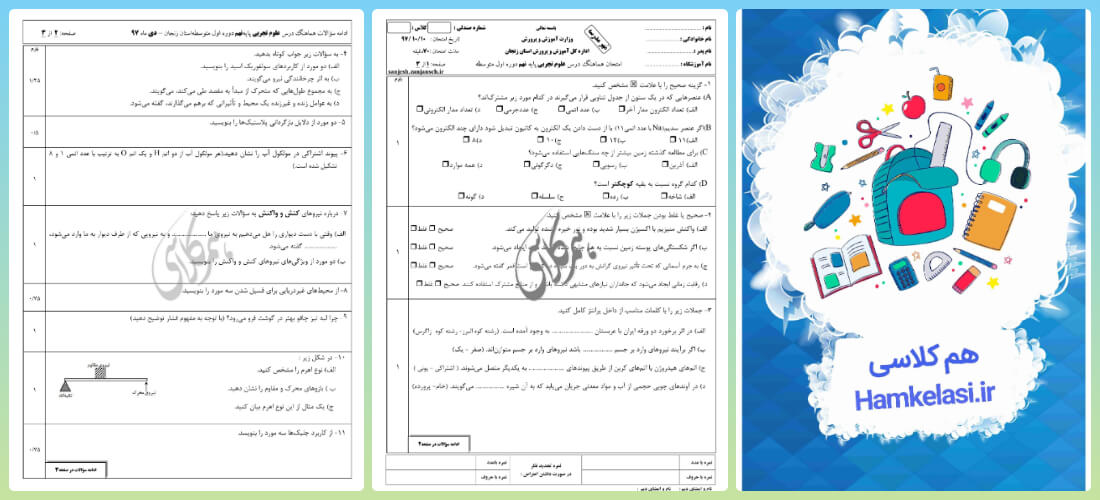 نام :
نام خانوادگی :
نام پدر :
نام آموزشگاه :
باسمه تعالی
وزارت آموزش و پرورش
اداره کل آموزش و پرورش استان زنجان
امتحان هماهنگ درس علوم تجربی پایه نهم دوره اول متوسطه
شماره صندلی :
کلاس :
تاریخ امتحان: ۹۷/۱۰/۱۰
مدت امتحان: ۷۰ دقیقه
صفحه: ۱ از ۳
sanjesh.zanjansch.ir
۱- گزینه صحیح را با علامت ☒ مشخص کنید.
A) عنصرهایی که در یک ستون از جدول تناوبی قرار می‌گیرند در کدام مورد زیر مشترک‌اند؟
الف) تعداد الکترون مدار آخر ☐ ب) عدد اتمی ☐ ج) عدد جرمی ☐ د) تعداد مدار الکترونی ☐
B) اگر عنصر سدیم Na (با عدد اتمی ۱۱) با از دست دادن یک الکترون به کاتیون تبدیل شود دارای چند الکترون می‌شود؟
الف) ۱۱ ☐ ب) ۱۲ ☐ ج) ۱۰ ☐ د) ۸ ☐
C) برای مطالعه گذشته زمین بیشتر از چه سنگ‌هایی استفاده می‌شود؟
الف) آذرین ☐ ب) رسوبی ☐ ج) دگرگونی ☐ د) همه موارد ☐
D) کدام گروه نسبت به بقیه کوچکتر است؟
الف) شاخه ☐ ب) رده ☐ ج) سلسله ☐ د) گونه ☐
۲- صحیح یا غلط بودن جملات زیر را با علامت ☒ مشخص کنید.
الف) واکنش منیزیم با اکسیژن بسیار شدید بوده و نور خیره کننده تولید می‌کند. صحیح ☐ غلط ☐
ب) اگر شکستگی‌های پوسته زمین نسبت به هم ایجاد می‌شود. صحیح ☐ غلط ☐
ج) به جرم آسمانی که تحت تأثیر نیروی گرانش به دور است قمر گفته می‌شود. صحیح ☐ غلط ☐
د) رقابت زمانی ایجاد می‌شود که جانداران نیازهای مشابهی داشته باشند و از منابع مشترک استفاده کنند. صحیح ☐ غلط ☐
۳- جملات زیر را با کلمات مناسب از داخل پرانتز کامل کنید.
الف) در اثر برخورد دو ورقه ایران با عربستان ............... به وجود آمده است. (رشته کوه البرز- رشته کوه زاگرس)
ب) اگر برآیند نیروهای وارد بر جسم ............... باشد نیروهای وارد بر جسم متوازن‌اند. (صفر - یک)
ج) اتم‌های هیدروژن با اتم‌های کربن از طریق پیوندهای ............... به یکدیگر متصل می‌شوند. ( اشتراکی - یونی )
د) در آوندهای چوبی حجمی از آب و مواد معدنی جریان می‌یابد که به آن شیره ............... می‌گویند. (خام- پرورده)
ادامه سؤالات در صفحه ۲
نمره با عدد
نمره با حروف
نمره تجدید نظر
در صورت داشتن اعتراض :
نمره باعدد
نمره با حروف
ادامه سؤالات هماهنگ درس علوم تجربی پایه نهم دوره اول متوسطه استان زنجان – دی ماه ۹۷
صفحه: ۲ از ۳
۴- به سؤالات زیر جواب کوتاه بدهید.
الف) دو مورد از کاربردهای سولفوریک اسید را بنویسید.
ب) به اثر چرخانندگی نیرو می‌گویند.
ج) به مجموع طول‌هایی که متحرک از مبدأ به مقصد طی می‌کند، می‌گویند.
د) به عوامل زنده و غیرزنده یک محیط و تأثیراتی که برهم می‌گذارند، گفته می‌شود.
۱/۲۵
۵- دو مورد از دلایل بازگردانی پلاستیک‌ها را بنویسید.
۰/۵
۶- پیوند اشتراکی در مولکول آب را نشان دهید.(هر مولکول آب از دو اتم H و یک اتم O به ترتیب با عدد اتمی ۱ و ۸ تشکیل شده است.)
۱
۷- درباره نیروهای کنش و واکنش به سؤالات زیر پاسخ دهید.
الف) وقتی با دست دیواری را هل می‌دهیم به نیروی ما ............... و به نیرویی که از طرف دیوار به ما وارد می‌شود، ............... گفته می‌شود.
ب) دو مورد از ویژگی‌های نیروهای کنش و واکنش را بنویسید.
۱
۸- از محیط‌های غیردریایی برای فسیل شدن سه مورد را بنویسید.
۰/۷۵
۹- چرا لبه تیز چاقو بهتر در گوشت فرو می‌رود؟ (با توجه به مفهوم فشار توضیح دهید)
۱
۱۰- در شکل زیر :
الف) نوع اهرم را مشخص کنید.
ب ) بازوهای محرک و مقاوم را نشان دهید.
ج) یک مثال از این نوع اهرم بیان کنید.
نیروی مقاوم
نیروی محرک
تکیه‌گاه
۱
۱۱- از کاربرد جلبک‌ها سه مورد را بنویسید.
۰/۷۵
ادامه سؤالات در صفحه ۳
هم کلاسی
Hamkelasi.ir